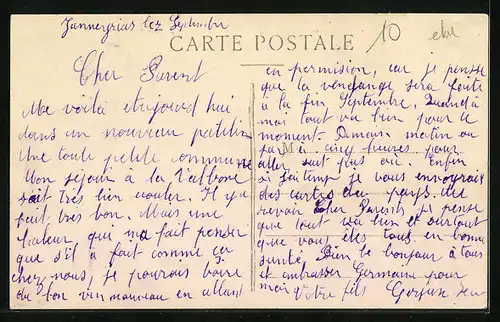 Jannergrias lez Septembre
10
CARTE POSTALE
Cher Parent
Me voila aujourd hui
dans un nouveau patelin
Une toute petite commune
Mon sejour a la
sait très bien couler. Il y a
fait très bon. Mais une
chaleur qui ma fait penser
que s'il a fait comme ça
chez nous, je pourais boire
du bon vin nouveau en allant
en permision, car je pensse
que la vendange sera faite
à la fin Septenbre. Quand à
moi tout va bien pour le
moment. Demain matin ou
par à cinq heures pour
aller sait pas ou. Enfin
si j'ai temp je vous envoyrai
des cartes du pays. Au
revoir Cher Parents je pense
que tout va bien et surtout
que vous êtes tous en bonne
santé. Bien le bonjour à tous
et embrasser Germaine pour
moi Votre fils